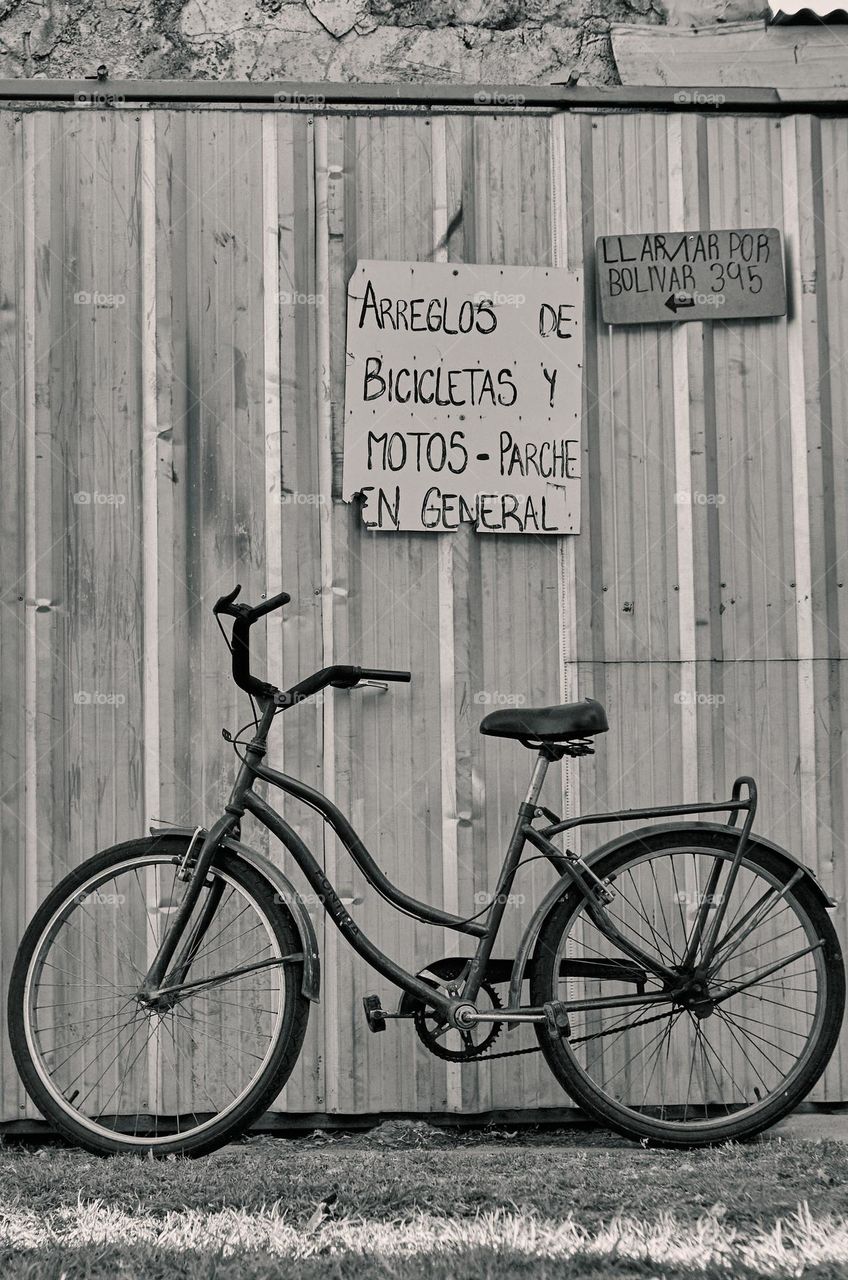 LLAMAR POR
BOLIVAR 395
ARREGLOS DE
BICICLETAS Y
MOTOS - PARCHE
EN GENERAL